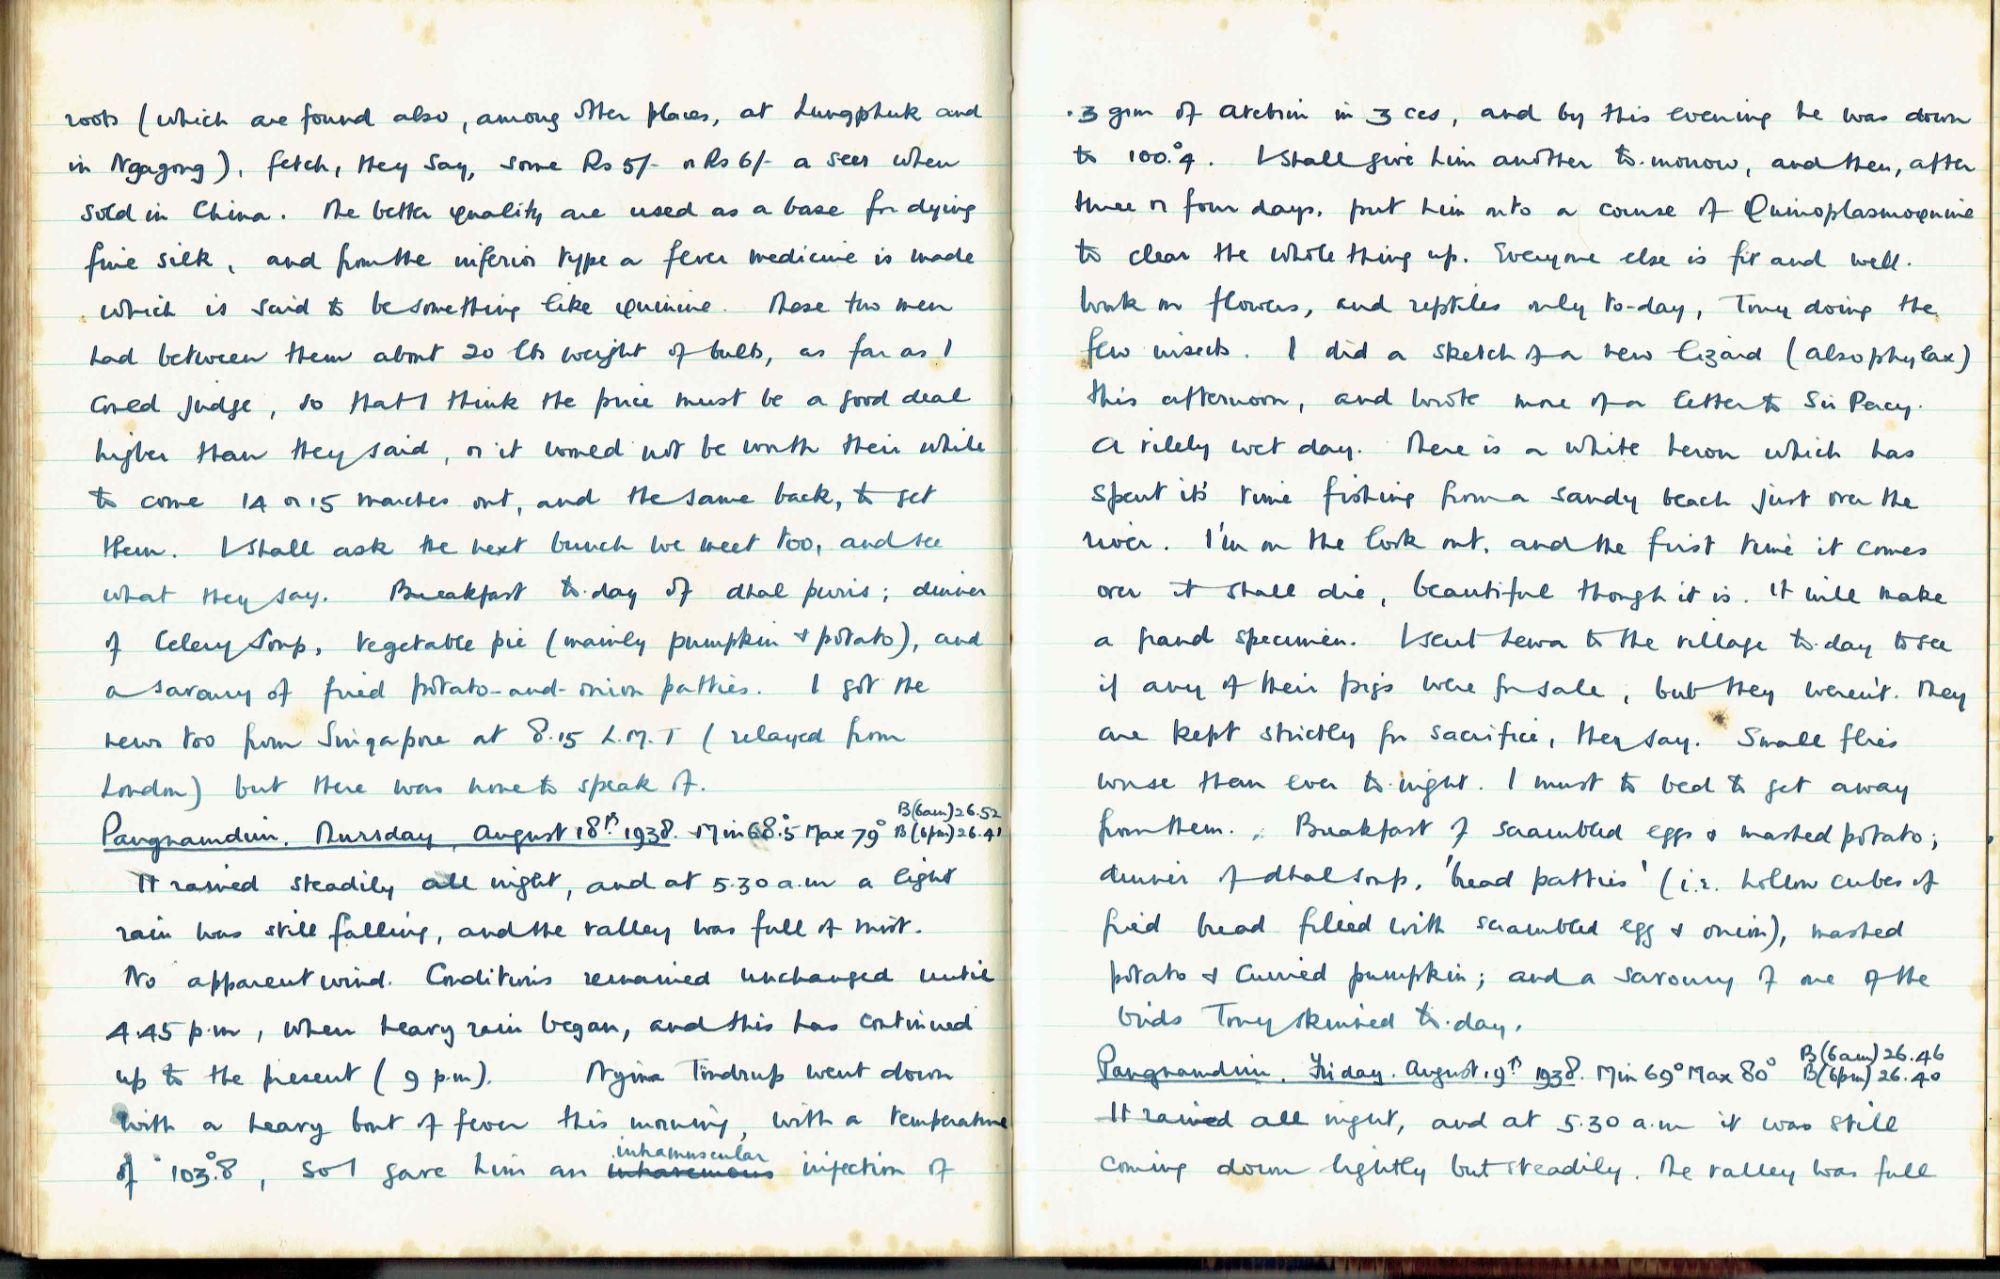 roots (which are found also, among other places, at Lungphuk and
in Ngagong), fetch, they say, some Rs 5/- or Rs 6/- a seer when
sold in China. The better quality are used as a base for dying
fine silk, and from the inferior type a fever medicine is made
which is said to be something like quinine. These two men
had between them about 20 lbs weight of bulbs, as far as I
could judge, so that I think the price must be a good deal
higher than they said, or it would not be worth their while
to come 14 or 15 marches out, and the same back, to get
them. I shall ask the next bunch we meet too, and see
what they say. Breakfast to-day of dhal puris; dinner
of Celery Soup, vegetable pie (mainly pumpkin & potato), and
a savoury of fried potato-and-onion patties. I got the
news too from Singapore at 8.15 L.M.T (relayed from
London) but there was none to speak of.
Pangnamdim. Thursday, August 18th 1938. Min 68.°5 Max 79° B(6am) 26.52
B(6pm) 26.41
It rained steadily all night, and at 5.30 a.m a light
rain was still falling, and the valley was full of mist.
No apparent wind. Conditions remained unchanged until
4.45 p.m, when heavy rain began, and this has continued
up to the present (9 p.m). Nyima Tindrup went down
with a heavy bout of fever this morning, with a temperature
of 103.°8, so I gave him an intramuscular injection of
.3 grm of atebrin in 3 ccs, and by this evening he was down
to 100.°4. I shall give him another to-morrow, and then, after
three or four days, put him onto a course of Quinoplasmoquine
to clear the whole thing up. Everyone else is fit and well.
Work on flowers, and reptiles only to-day, Tony doing the
few insects. I did a sketch of a new lizard (alsophylax)
this afternoon, and wrote more of a letter to Sir Percy.
A vilely wet day. There is a white heron which has
spent it's time fishing from a sandy beach just over the
river. I'm on the look out, and the first time it comes
over it shall die, beautiful though it is. It will make
a grand specimen. I sent Lewa to the village to-day to see
if any of their pigs were for sale, but they weren't. They
are kept strictly for sacrifice, they say. Small flies
worse than ever to-night. I must to bed to get away
from them. Breakfast of scrambled eggs & mashed potato;
dinner of dhal soup, 'bread patties' (i.e. hollow cubes of
fried bread filled with scrambled egg & onion), mashed
potato & curried pumpkin; and a savoury of one of the
birds Tony skinned to-day.
Pangnamdim. Friday. August 19th 1938. Min 69° Max 80° B(6am) 26.46
B(6pm) 26.40
It rained all night, and at 5.30 a.m it was still
coming down lightly but steadily. The valley was full